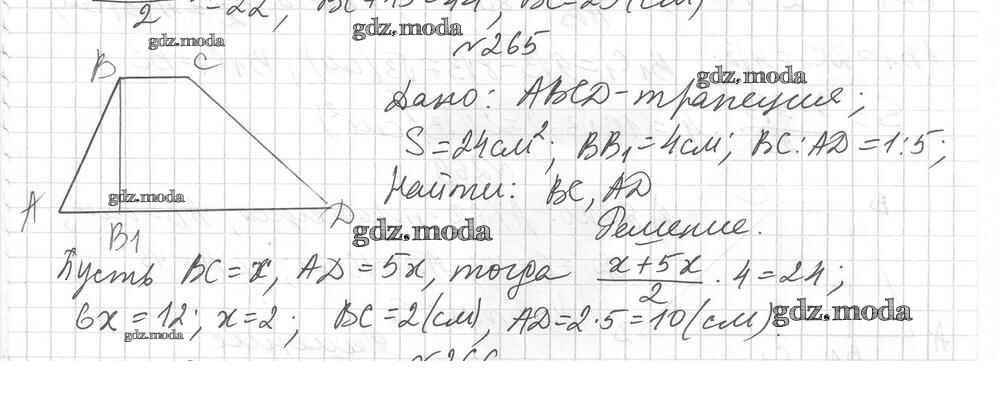 /2 = 22; BC + 19 = 44; BC = 25 (см)
gdz.moda
gdz.moda
№265
B C
gdz.moda
Дано: ABCD - трапеция;
S = 24 см²; BB₁ = 4 см; BC : AD = 1 : 5;
Найти: BC, AD
gdz.moda
A D
B1
gdz.moda
Решение.
Пусть BC = x, AD = 5x, тогда (x + 5x)/2 · 4 = 24;
6x = 12; x = 2; BC = 2 (см), AD = 2 · 5 = 10 (см).
gdz.moda
gdz.moda
№266